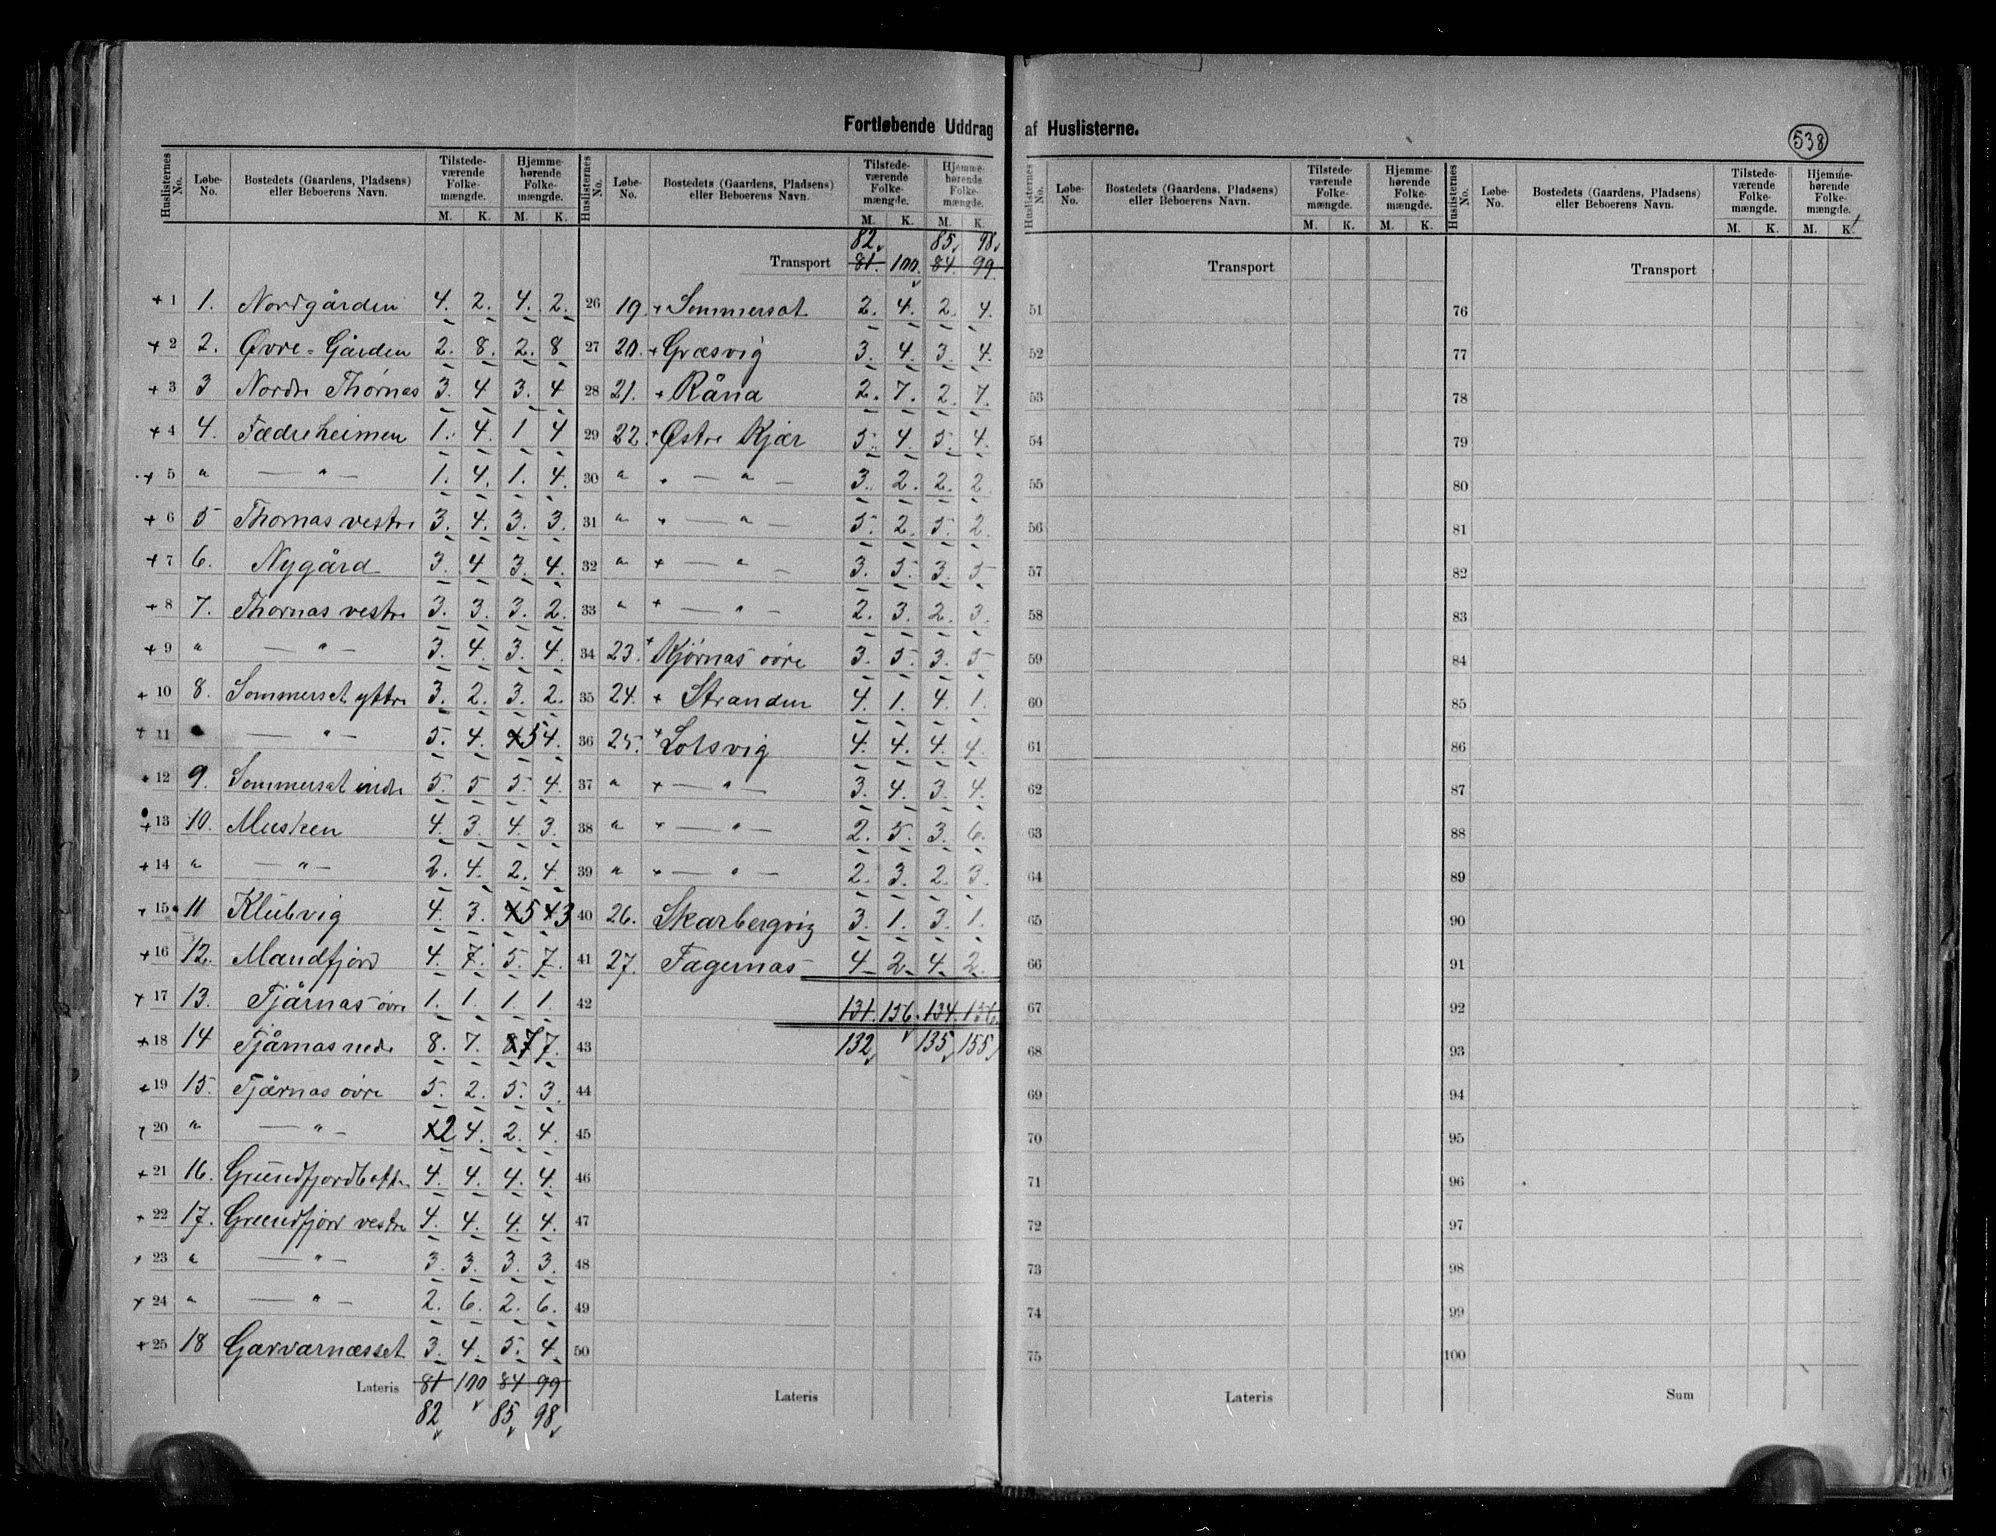 Fortløbende Uddrag af Huslisterne.
538
Huslisternes No. | Løbe-No. | Bostedets (Gaardens, Pladsens) eller Beboerens Navn. | Tilstedeværende Folkemængde. M. K. | Hjemmehørende Folkemængde. M. K.
+ 1 1. Nordgården 4. 2. 4. 2.
+ 2 2. Øvre-Gården 2. 8. 2. 8
+ 3 3 Nordre Thornas 3. 4 3. 4
+ 4 4. Fædreheimen 1. 4. 1 4
+ 5 " — " — 1. 4. 1. 4.
+ 6 5 Thornas vestre 3. 4. 3. 3.
+ 7 6. Nygård 3. 4 3. 4.
+ 8 7. Thornas vestre 3. 3. 3. 2.
+ 9 " — " — 3. 4. 3. 4.
+ 10 8. Sommerset yttre 3. 2. 3. 2.
+ 11 — " — 5. 4. 5 4.
+ 12 9. Sommerset indre 5. 5 5. 4.
+ 13 10. Musken 4. 3. 4. 3.
+ 14 " — " — 2. 4. 2. 4.
+ 15 11 Klubvig 4. 3. 4 5 4 3
+ 16 12. Mandfjord 4. 7. 5. 7.
+ 17 13. Tjårnas øvre 1. 1. 1. 1.
+ 18 14 Tjårnas nedre 8. 7. 8 7 7.
+ 19 15. Tjårnas øvre 5. 2. 5. 3.
+ 20 " — " — 2 4. 2. 4.
+ 21 16. Grundfjordbotten 4. 4. 4. 4.
+ 22 17. Grundfjord vestre 4. 4. 4. 4.
+ 23 " — " — 3. 3. 3. 3.
+ 24 " — " — 2. 6. 2. 6.
+ 25 18 Garvarnæsset 3. 4. 5. 4.
Lateris 81 100 84 99
82 85 98
Huslisternes No. | Løbe-No. | Bostedets (Gaardens, Pladsens) eller Beboerens Navn. | Tilstedeværende Folkemængde. M. K. | Hjemmehørende Folkemængde. M. K.
82 85 98
Transport 81. 100. 84. 99.
26 19. + Sommersat 2. 4. 2. 4.
27 20. + Græsvig 3. 4. 3. 4.
28 21. + Rånd 2. 7. 2. 7.
29 22. + Østre Kjær 5. 4. 5. 4.
30 " — " — 3. 2. 2. 2
31 " — " — 5. 2. 5. 2.
32 " + — " — 3. 5. 3. 5
33 " + — " — 2. 3. 2. 3.
34 23. + Kjørnas øvre 3. 5. 3. 5
35 24. + Stranden 4. 1. 4. 1.
36 25. + Lotsvig 4. 4. 4. 4.
37 " + — " — 3. 4. 3. 4.
38 " + — " — 2. 5. 3. 6.
39 " + — " — 2. 3. 2. 3.
40 26. Skarbergvig 3. 1. 3. 1.
41 27. Fagernas 4 2 4 2.
42 131. 156. 134. 156.
43 132 135 155
44
45
46
47
48
49
50
Lateris
Huslisternes No. | Løbe-No. | Bostedets (Gaardens, Pladsens) eller Beboerens Navn. | Tilstedeværende Folkemængde. M. K. | Hjemmehørende Folkemængde. M. K.
Transport
51
52
53
54
55
56
57
58
59
60
61
62
63
64
65
66
67
68
69
70
71
72
73
74
75
Lateris
Huslisternes No. | Løbe-No. | Bostedets (Gaardens, Pladsens) eller Beboerens Navn. | Tilstedeværende Folkemængde. M. K. | Hjemmehørende Folkemængde. M. K.
Transport
76
77
78
79
80
81
82
83
84
85
86
87
88
89
90
91
92
93
94
95
96
97
98
99
100
Sum